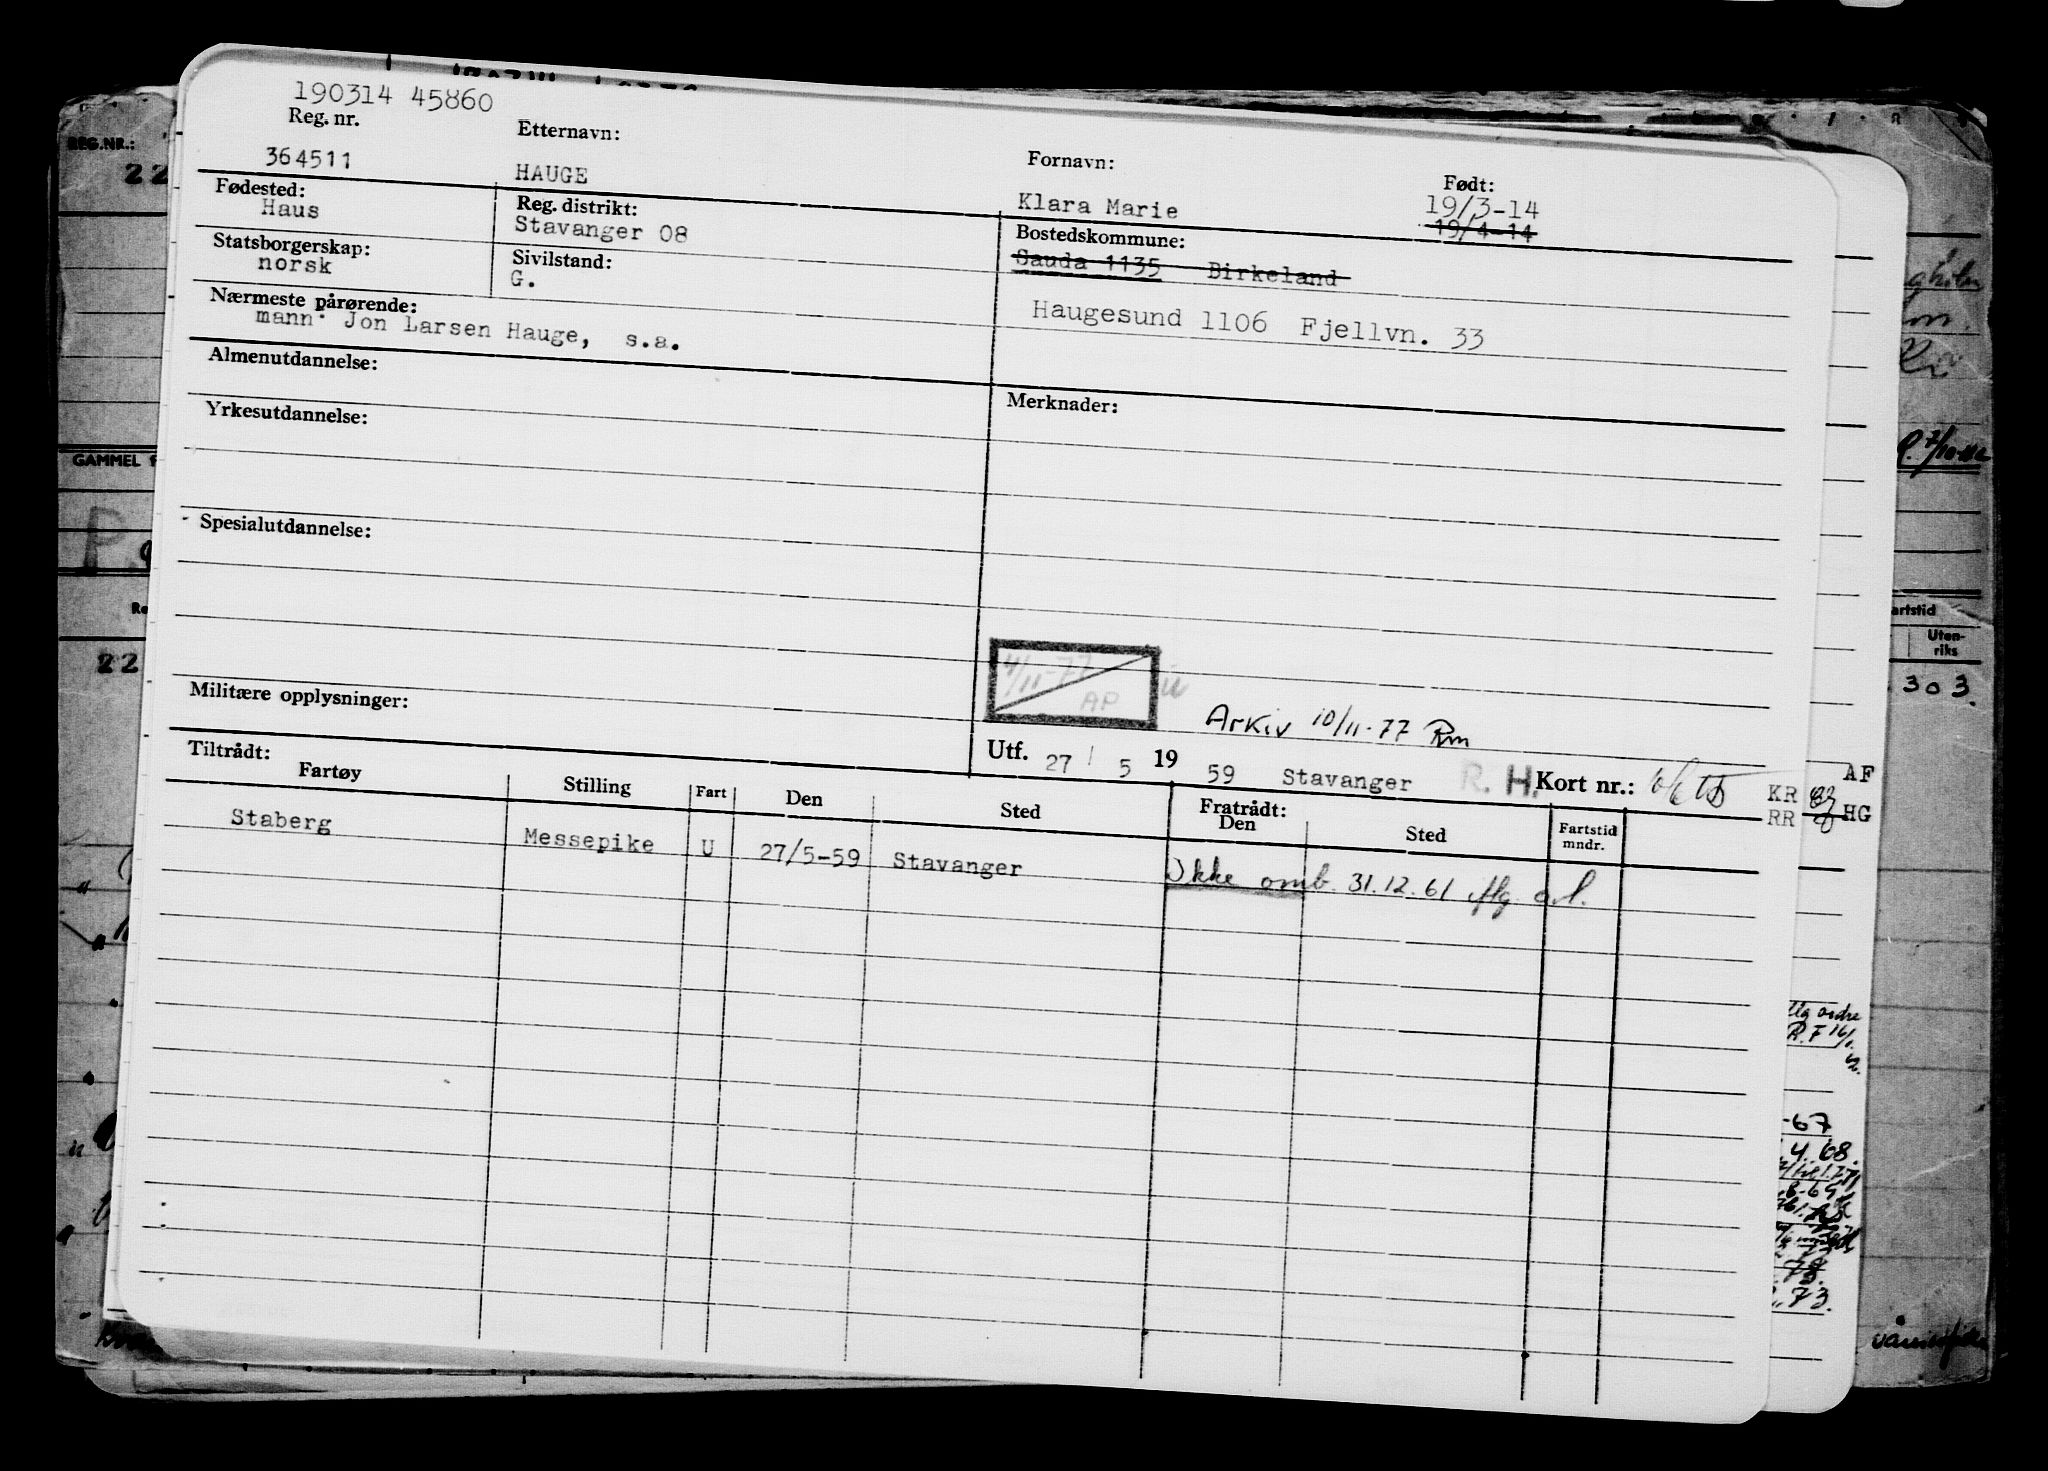 190314 45860
Reg. nr. Etternavn: Fornavn: Født:
364511 HAUGE Klara Marie 19/3-14
19/4-14
Fødested: Reg. distrikt: Bostedskommune:
Haus Stavanger 08 Sauda 1135 Birkeland
Statsborgerskap: Sivilstand:
norsk G. Haugesund 1106 Fjellvn. 33
Nærmeste pårørende:
mann Jon Larsen Hauge, s.a.
Almenutdannelse:
Yrkesutdannelse: Merknader:
Spesialutdannelse:
4/11-77
AP
Militære opplysninger: Arkiv 10/11-77 Rm
Utf. 27 / 5 19 59 Stavanger R. H. Kort nr.:
Tiltrådt:
Fartøy Stilling Fart Den Sted Fratrådt:
Den Sted Fartstid
mndr.
Staberg Messepike U 27/5-59 Stavanger Ikke omb. 31.12.61 iflg. a.l.
REG.NR.:
22
GAMMEL
P.
22
KR
RR
AF
HG
artstid
Uten-
riks
303.
-67
4.68.
73.